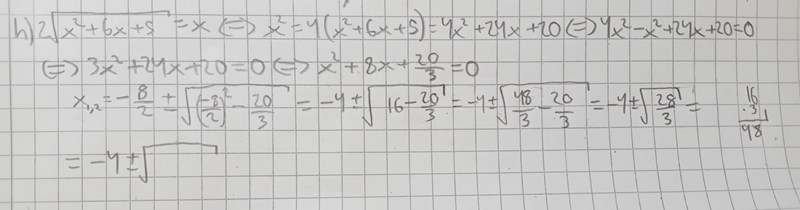 h) 2√(x²+6x+5) = x ⇔ x² = 4(x²+6x+5) = 4x²+24x+20 ⇔ 4x²-x²+24x+20=0
⇔ 3x²+24x+20=0 ⇔ x²+8x+20/3=0
x₁,₂ = -8/2 ± √((-8/2)² - 20/3) = -4 ± √(16 - 20/3) = -4 ± √(48/3 - 20/3) = -4 ± √(28/3) =
16
·3
48
= -4 ± √